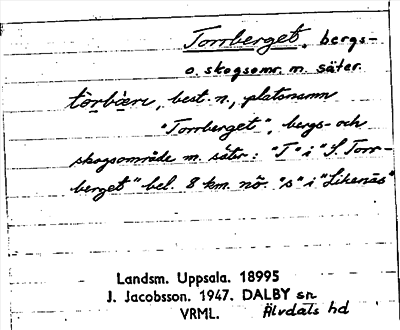 Torrberget, bergs-
o. skogsomr. m. säter.
tör̀bæ̀rı, best. n., platsnamn
"Torrberget", bergs- och
skogsområde m. säter: "T" i "S. Torr-
berget" bel. 8 km. nö. "s" i "Likenäs"
Landsm. Uppsala. 18995
J. Jacobsson. 1947. DALBY sn
VRML. Älvdals hd